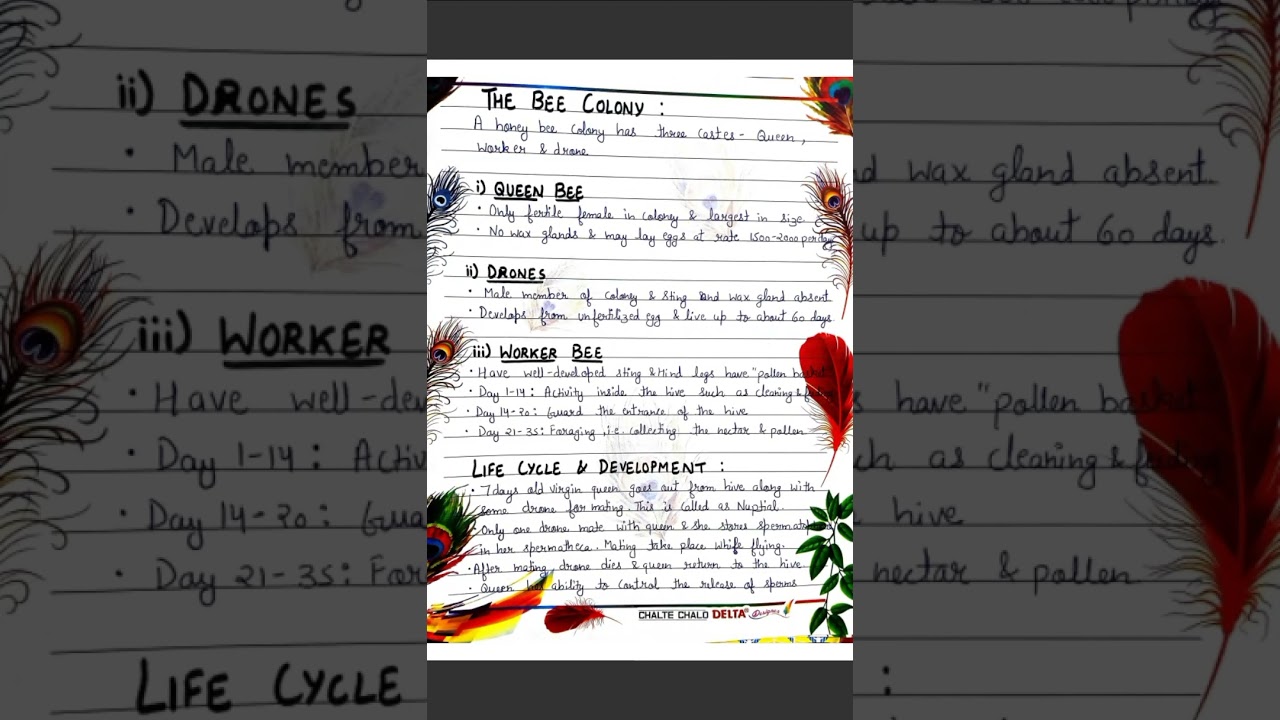 THE BEE COLONY :
A honey bee colony has three castes - Queen,
Worker & drone
i) QUEEN BEE
• Only fertile female in colony & largest in size.
• No wax glands & may lay eggs at rate 1500-2000 per day
ii) DRONES
• Male member of colony & sting and wax gland absent
• Develops from unfertilized egg & live up to about 60 days
iii) WORKER BEE
• Have well-developed sting & Hind legs have "pollen basket"
• Day 1-14: Activity inside the hive such as cleaning & feeding
• Day 14-20: Guard the entrance of the hive
• Day 21-35: Foraging, i.e. collecting the nectar & pollen
LIFE CYCLE & DEVELOPMENT :
• 7 days old virgin queen goes out from hive along with
some drone for mating. This is called as Nuptial.
Only one drone mate with queen & she stores
in her spermatheca. Mating take place while flying.
• After mating, drone dies & queen return to the hive
• Queen has ability to control the release of sperms
CHALTE CHALO DELTA® Designer
ii) DRONES
• Male member
• Develops from
iii) WORKER
• Have well-dev
• Day 1-14: Activ
• Day 14-20: Gua
• Day 21-35: For
LIFE CYCLE
d wax gland absent.
up to about 60 days.
s have "pollen basket
ch as cleaning & feeding
hive
nectar & pollen
: